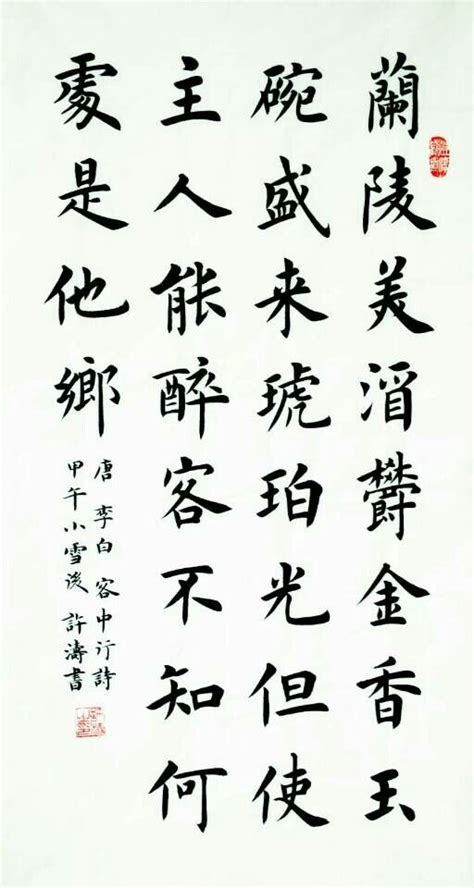 蘭陵美酒欝金香玉
碗盛来琥珀光但使
主人能醉客不知何
處是他鄉
唐 李白 客中行詩
甲午小雪後 許濤書